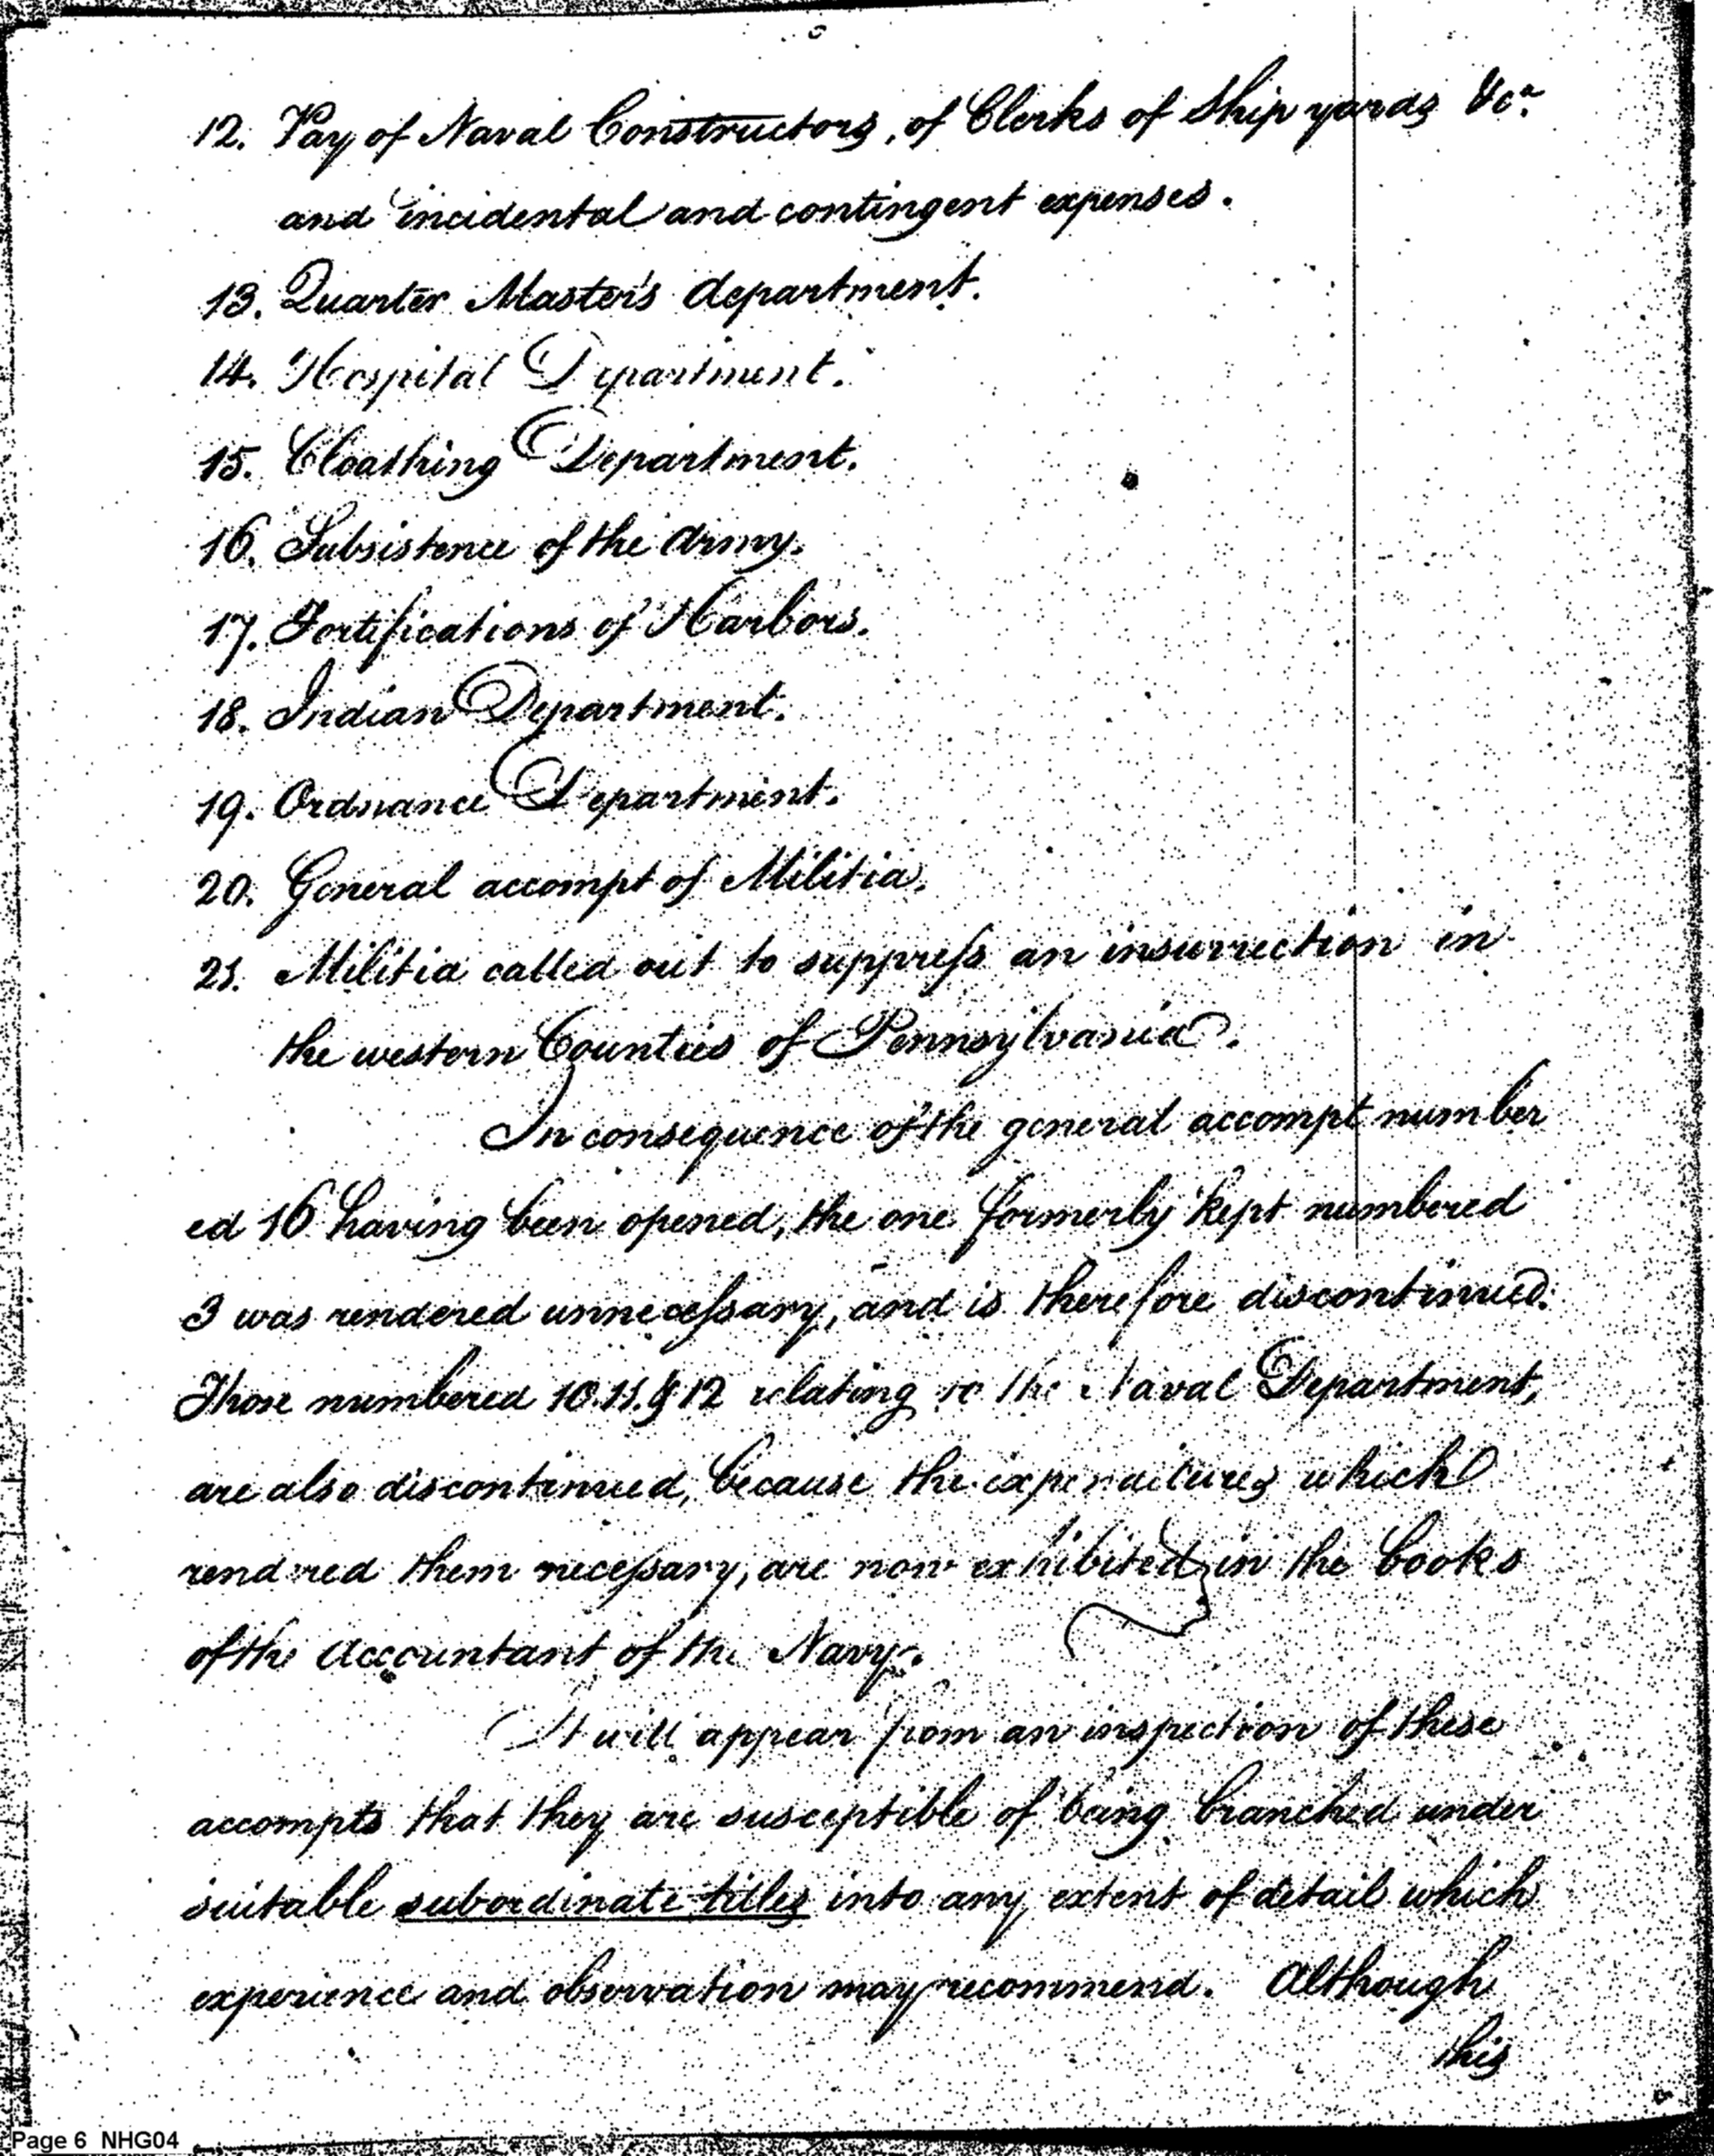 12. Pay of Naval Constructors, of Clerks of Ship yards &c.
and incidental and contingent expenses.
13. Quarter Master's department.
14. Hospital Department.
15. Cloathing Department.
16. Subsistence of the Army.
17. Fortifications of Harbors.
18. Indian Department.
19. Ordnance Department.
20. General accompt of Militia.
21. Militia called out to suppress an insurrection in
the western Counties of Pennsylvania.
In consequence of the general accompt number
ed 16 having been opened, the one formerly kept numbered
3 was rendered unnecessary, and is therefore discontinued.
Those numbered 10.11.& 12 relating to the Naval Department,
are also discontinued, because the expenditures which
rendered them necessary, are now exhibited in the books
of the Accountant of the Navy.
It will appear from an inspection of these
accompts that they are susceptible of being branched under
suitable subordinate titles into any extent of detail which
experience and observation may recommend. Although
this
Page 6 NHG04